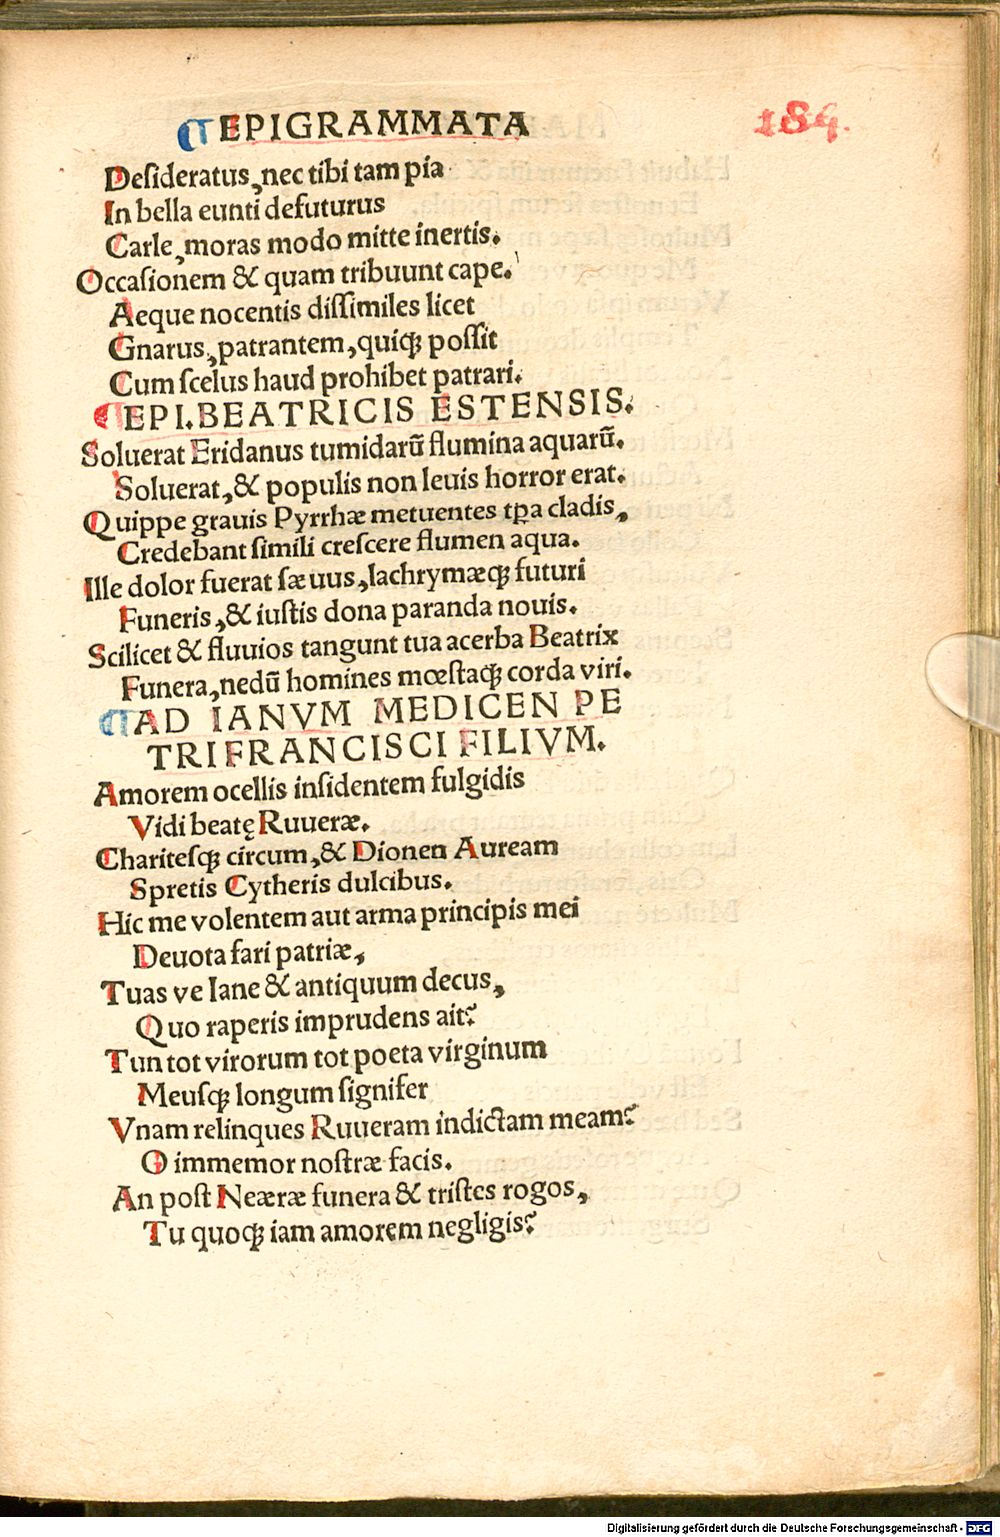 EPIGRAMMATA
184.
Desideratus, nec tibi tam pia
In bella eunti defuturus
Carle, moras modo mitte inertis.
Occasionem & quam tribuunt cape.
Aeque nocentis dissimiles licet
Gnarus, patrantem, quiqꝫ possit
Cum scelus haud prohibet patrari.
EPI. BEATRICIS ESTENSIS.
Soluerat Eridanus tumidarū flumina aquarū.
Soluerat, & populis non leuis horror erat.
Quippe grauis Pyrrhæ metuentes tꝑa cladis,
Credebant simili crescere flumen aqua.
Ille dolor fuerat sæuus, lachrymæqꝫ futuri
Funeris, & iustis dona paranda nouis.
Scilicet & fluuios tangunt tua acerba Beatrix
Funera, nedū homines mœstaqꝫ corda viri.
AD IANVM MEDICEN PE
TRI FRANCISCI FILIVM.
Amorem ocellis insidentem fulgidis
Vidi beatę Ruueræ.
Charitesqꝫ circum, & Dionen Auream
Spretis Cytheris dulcibus.
Hic me volentem aut arma principis mei
Deuota fari patriæ,
Tuas ve Iane & antiquum decus,
Quo raperis imprudens ait?
Tun tot virorum tot poeta virginum
Meusqꝫ longum signifer
Vnam relinques Ruueram indictam meam?
O immemor nostræ facis.
An post Neæræ funera & tristes rogos,
Tu quoqꝫ iam amorem negligis?
Digitalisierung gefördert durch die Deutsche Forschungsgemeinschaft - DFG